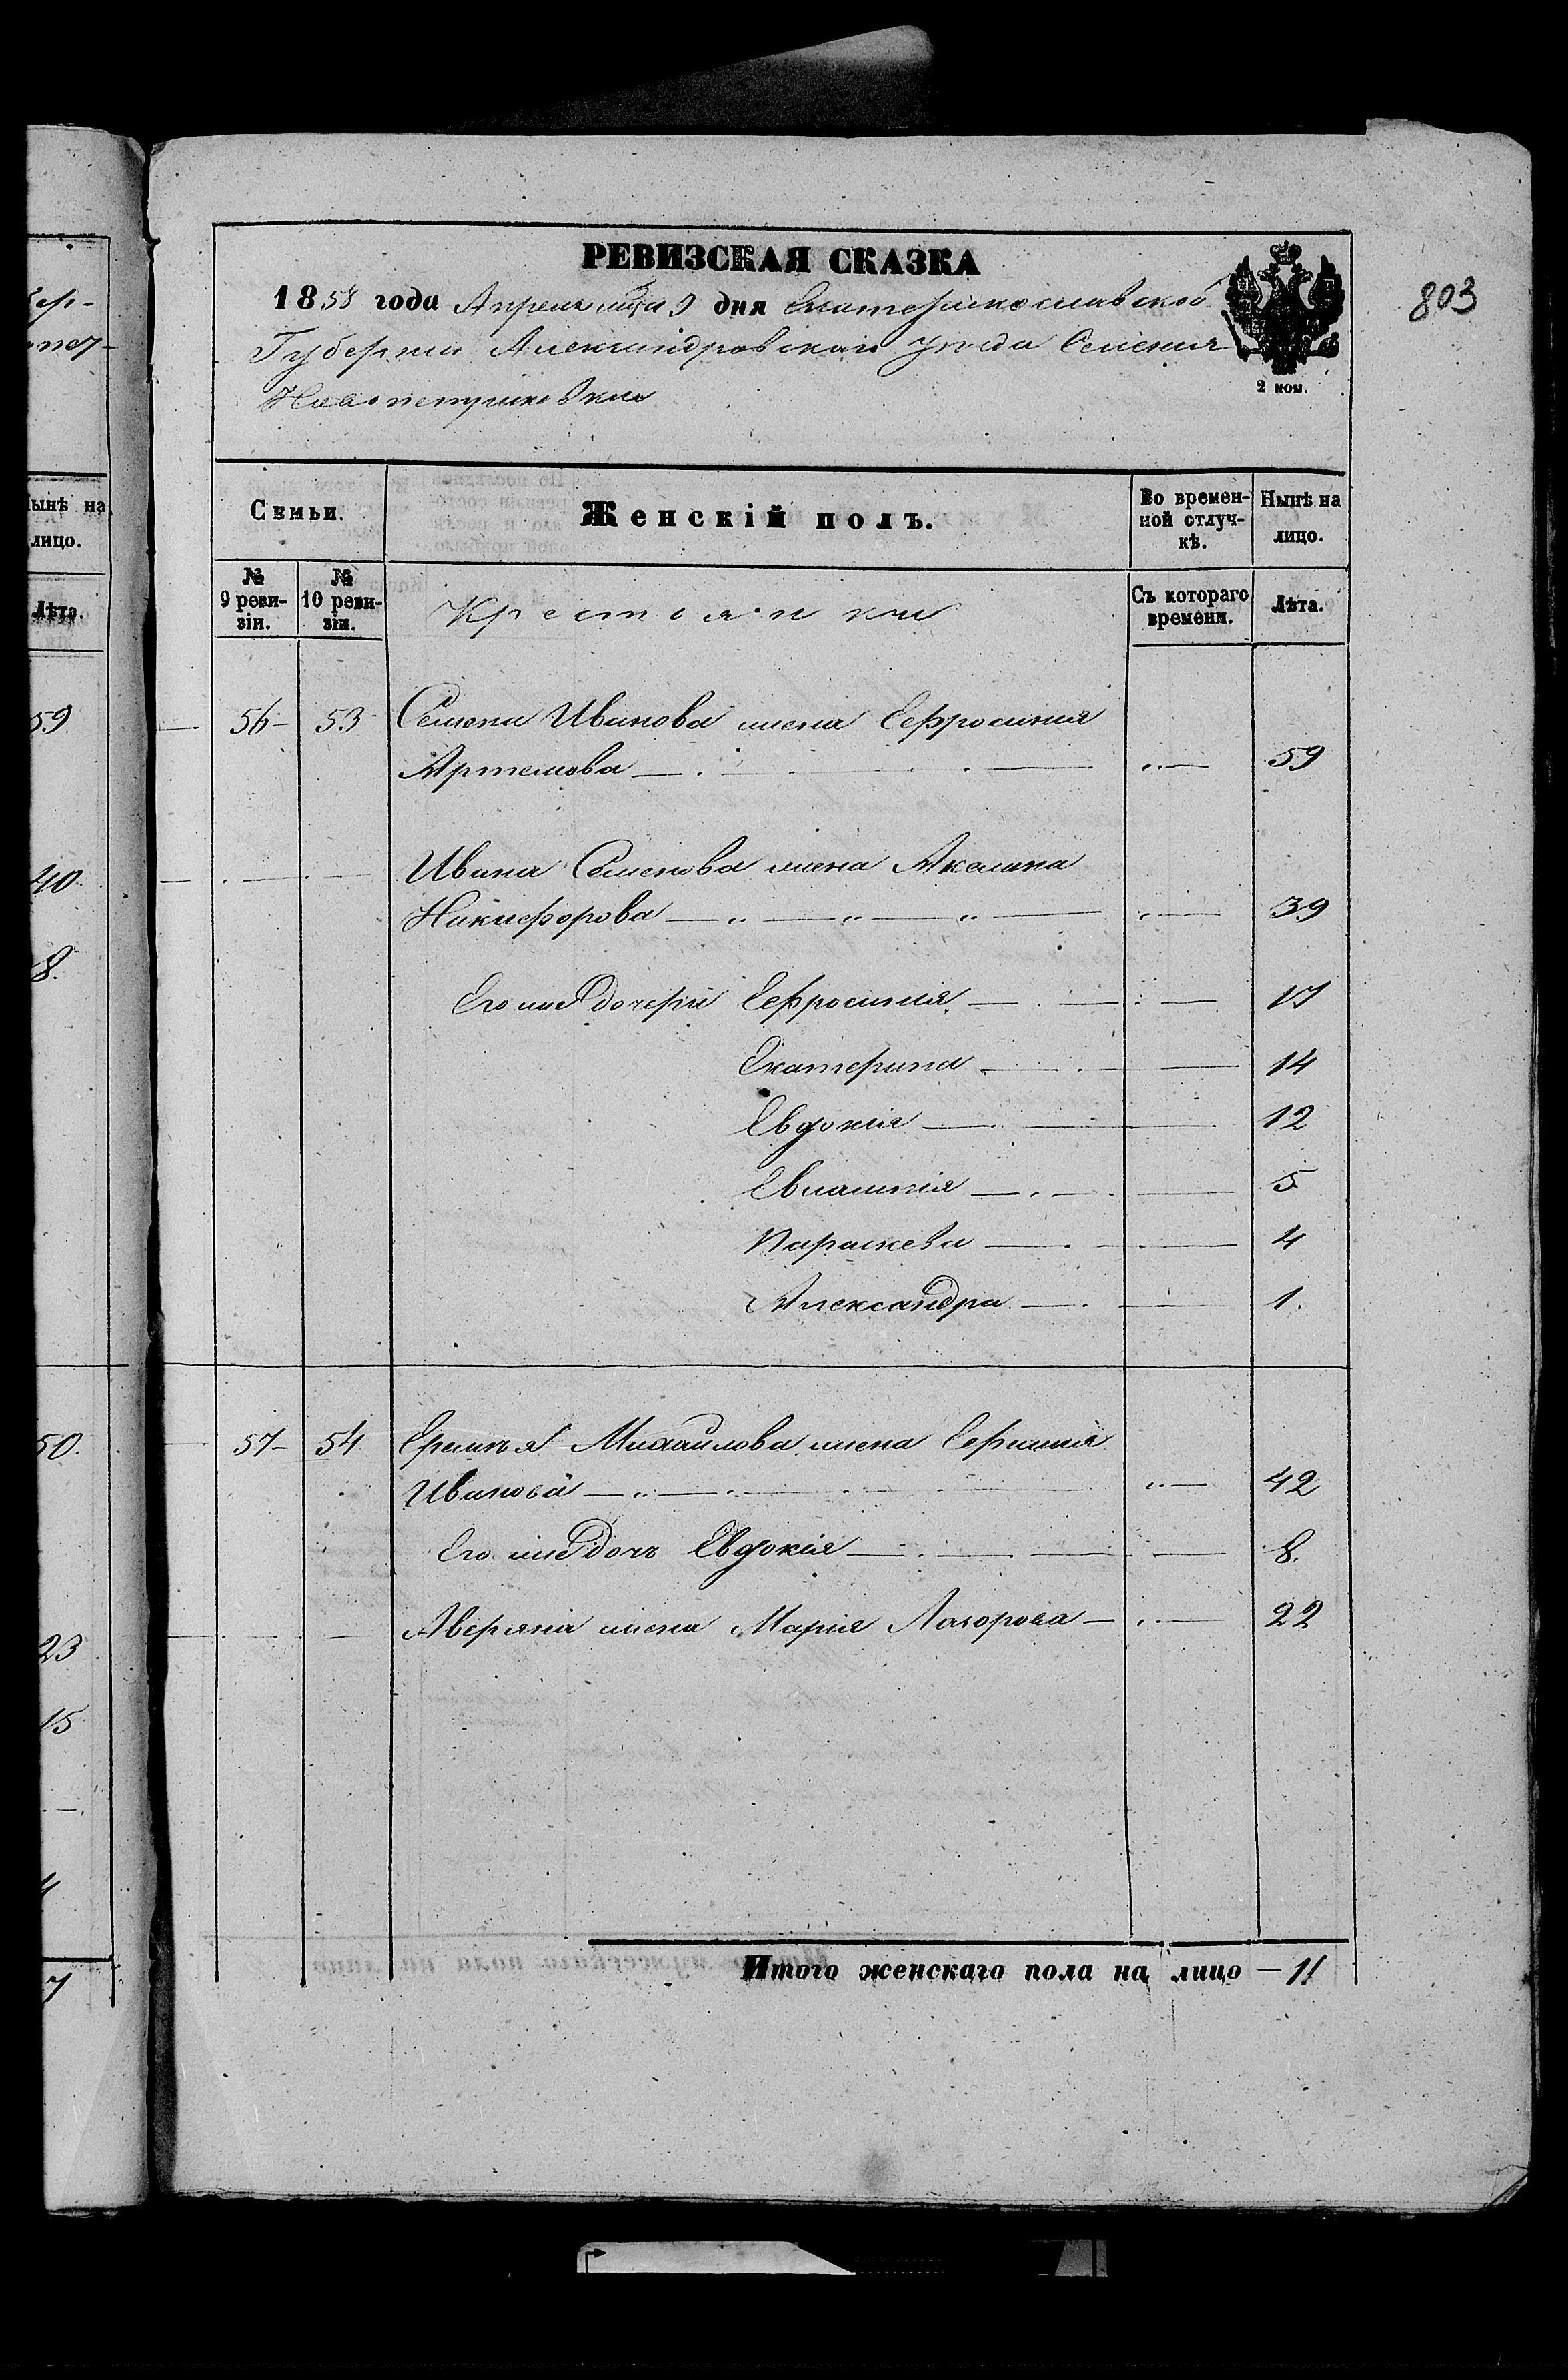 РЕВИЗСКАЯ СКАЗКА
1858 года Апреля мца 9 дня Екатеринославской
Губернии Александровскаго уезда Селения
803
2 коп.
Семьи.
Женскій полъ.
Во времен-
ной отлуч-
кѣ.
Нынѣ на
лицо.
№
9 реви-
зіи.
№
10 реви-
зіи.
Крестьянки
Съ котораго
времени.
Лѣта.
56 53 Семена Иванова жена Еефросиния
Артемова 59
Ивана Семенова жена Акелина
Никифорова 39
Его же дочери Еефросинія 17
Екатерина 14
Евдокия 12
5
Параскева 4
Александра 1.
57 54 Еремѣя Михайлова жена
Иванова 42
Его же дочь Евдокія 8.
Аверяна жена Мария 22
Итого женскаго пола на лицо — 11
ынѣ на
лицо.
Лѣта.
59
40
8.
50.
23
15
4
7